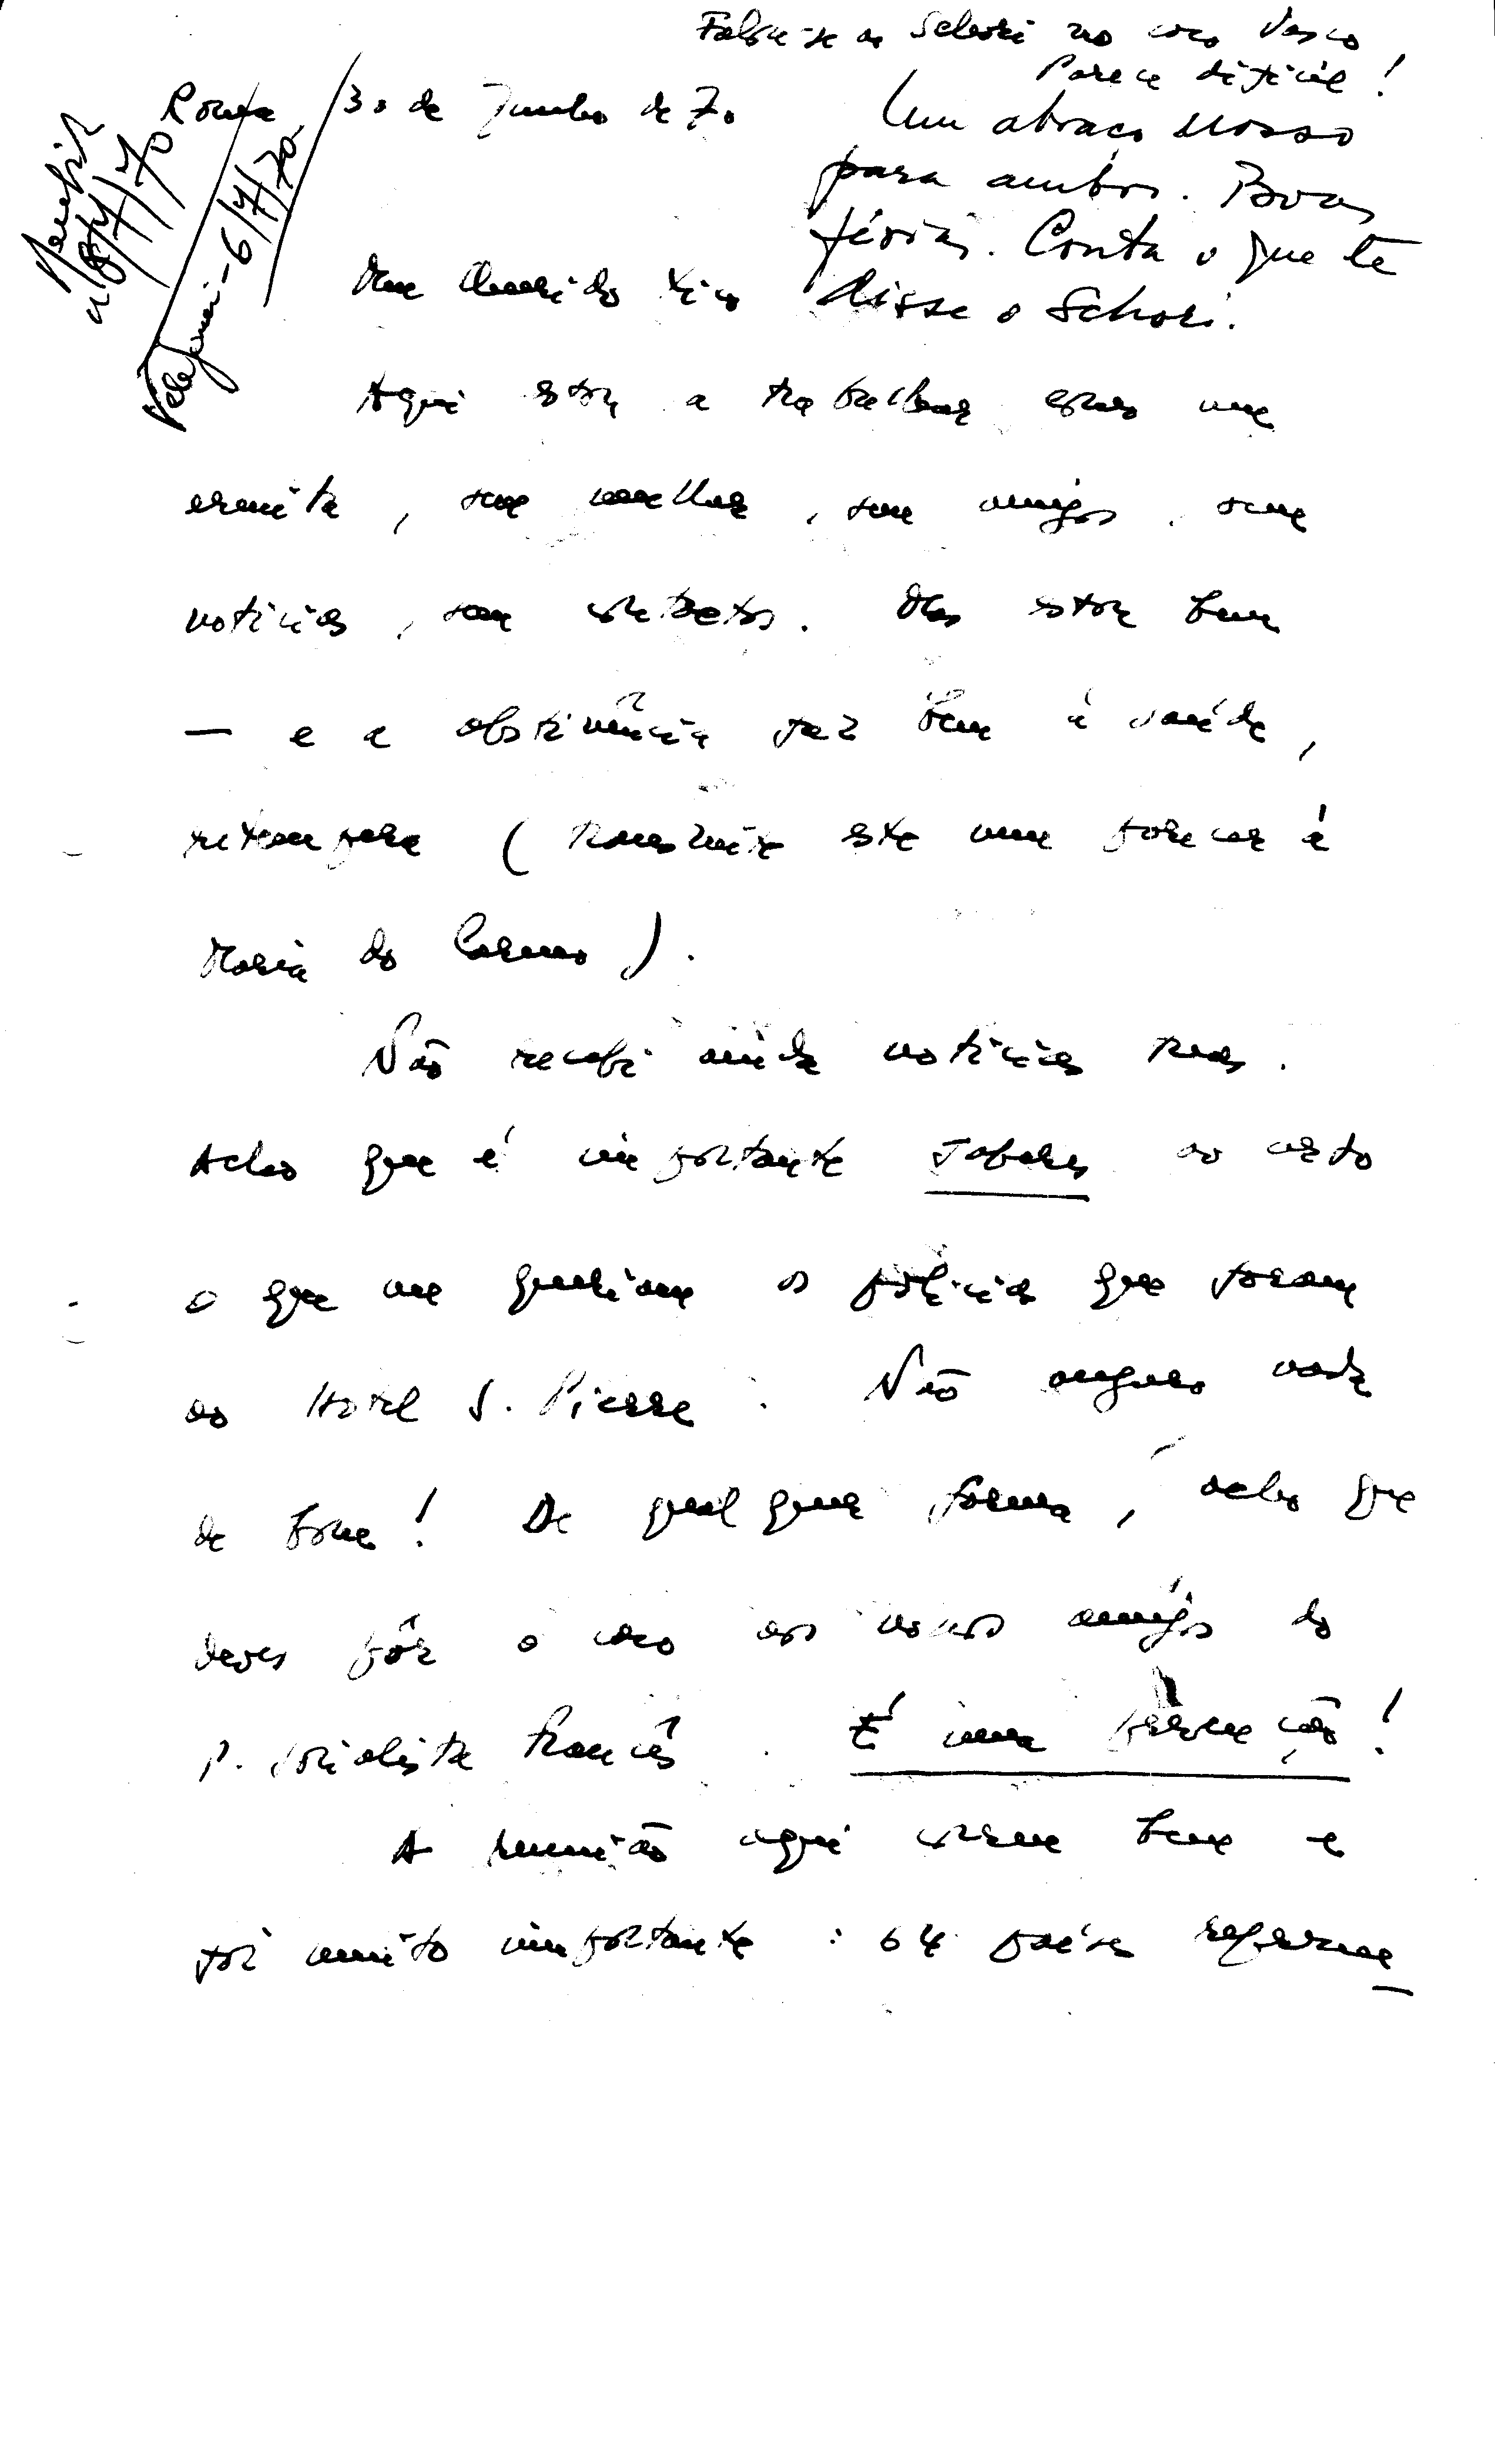 Falaste ao Schori no caso Vasco
Parece difícil!
Um abraço nosso
para ambos. Boas
férias. Conta o que te
disse o Schori.
8/7/70
Telefonei - 6/7/70
Roma, 30 de Junho de 70
Meu Querido Tito
Aqui estou a trabalhar como um
ermita, sem mulher, sem amigos, sem
notícias, sem contactos. Mas estou bem
— e a abstinência faz bem à saúde,
retempera (transmite este meu parecer à
Maria do Carmo).
Não recebi ainda notícias tuas.
Acho que é importante saberes ao certo
o que me queriam os polícias que foram
ao Hotel S. Pierre. Não auguro nada
de bom! De qualquer forma, acho que
deves pôr o caso aos nossos amigos do
P. Socialista francês. É uma precaução!
A reunião aqui correu bem e
foi muito importante: 64 países represen-